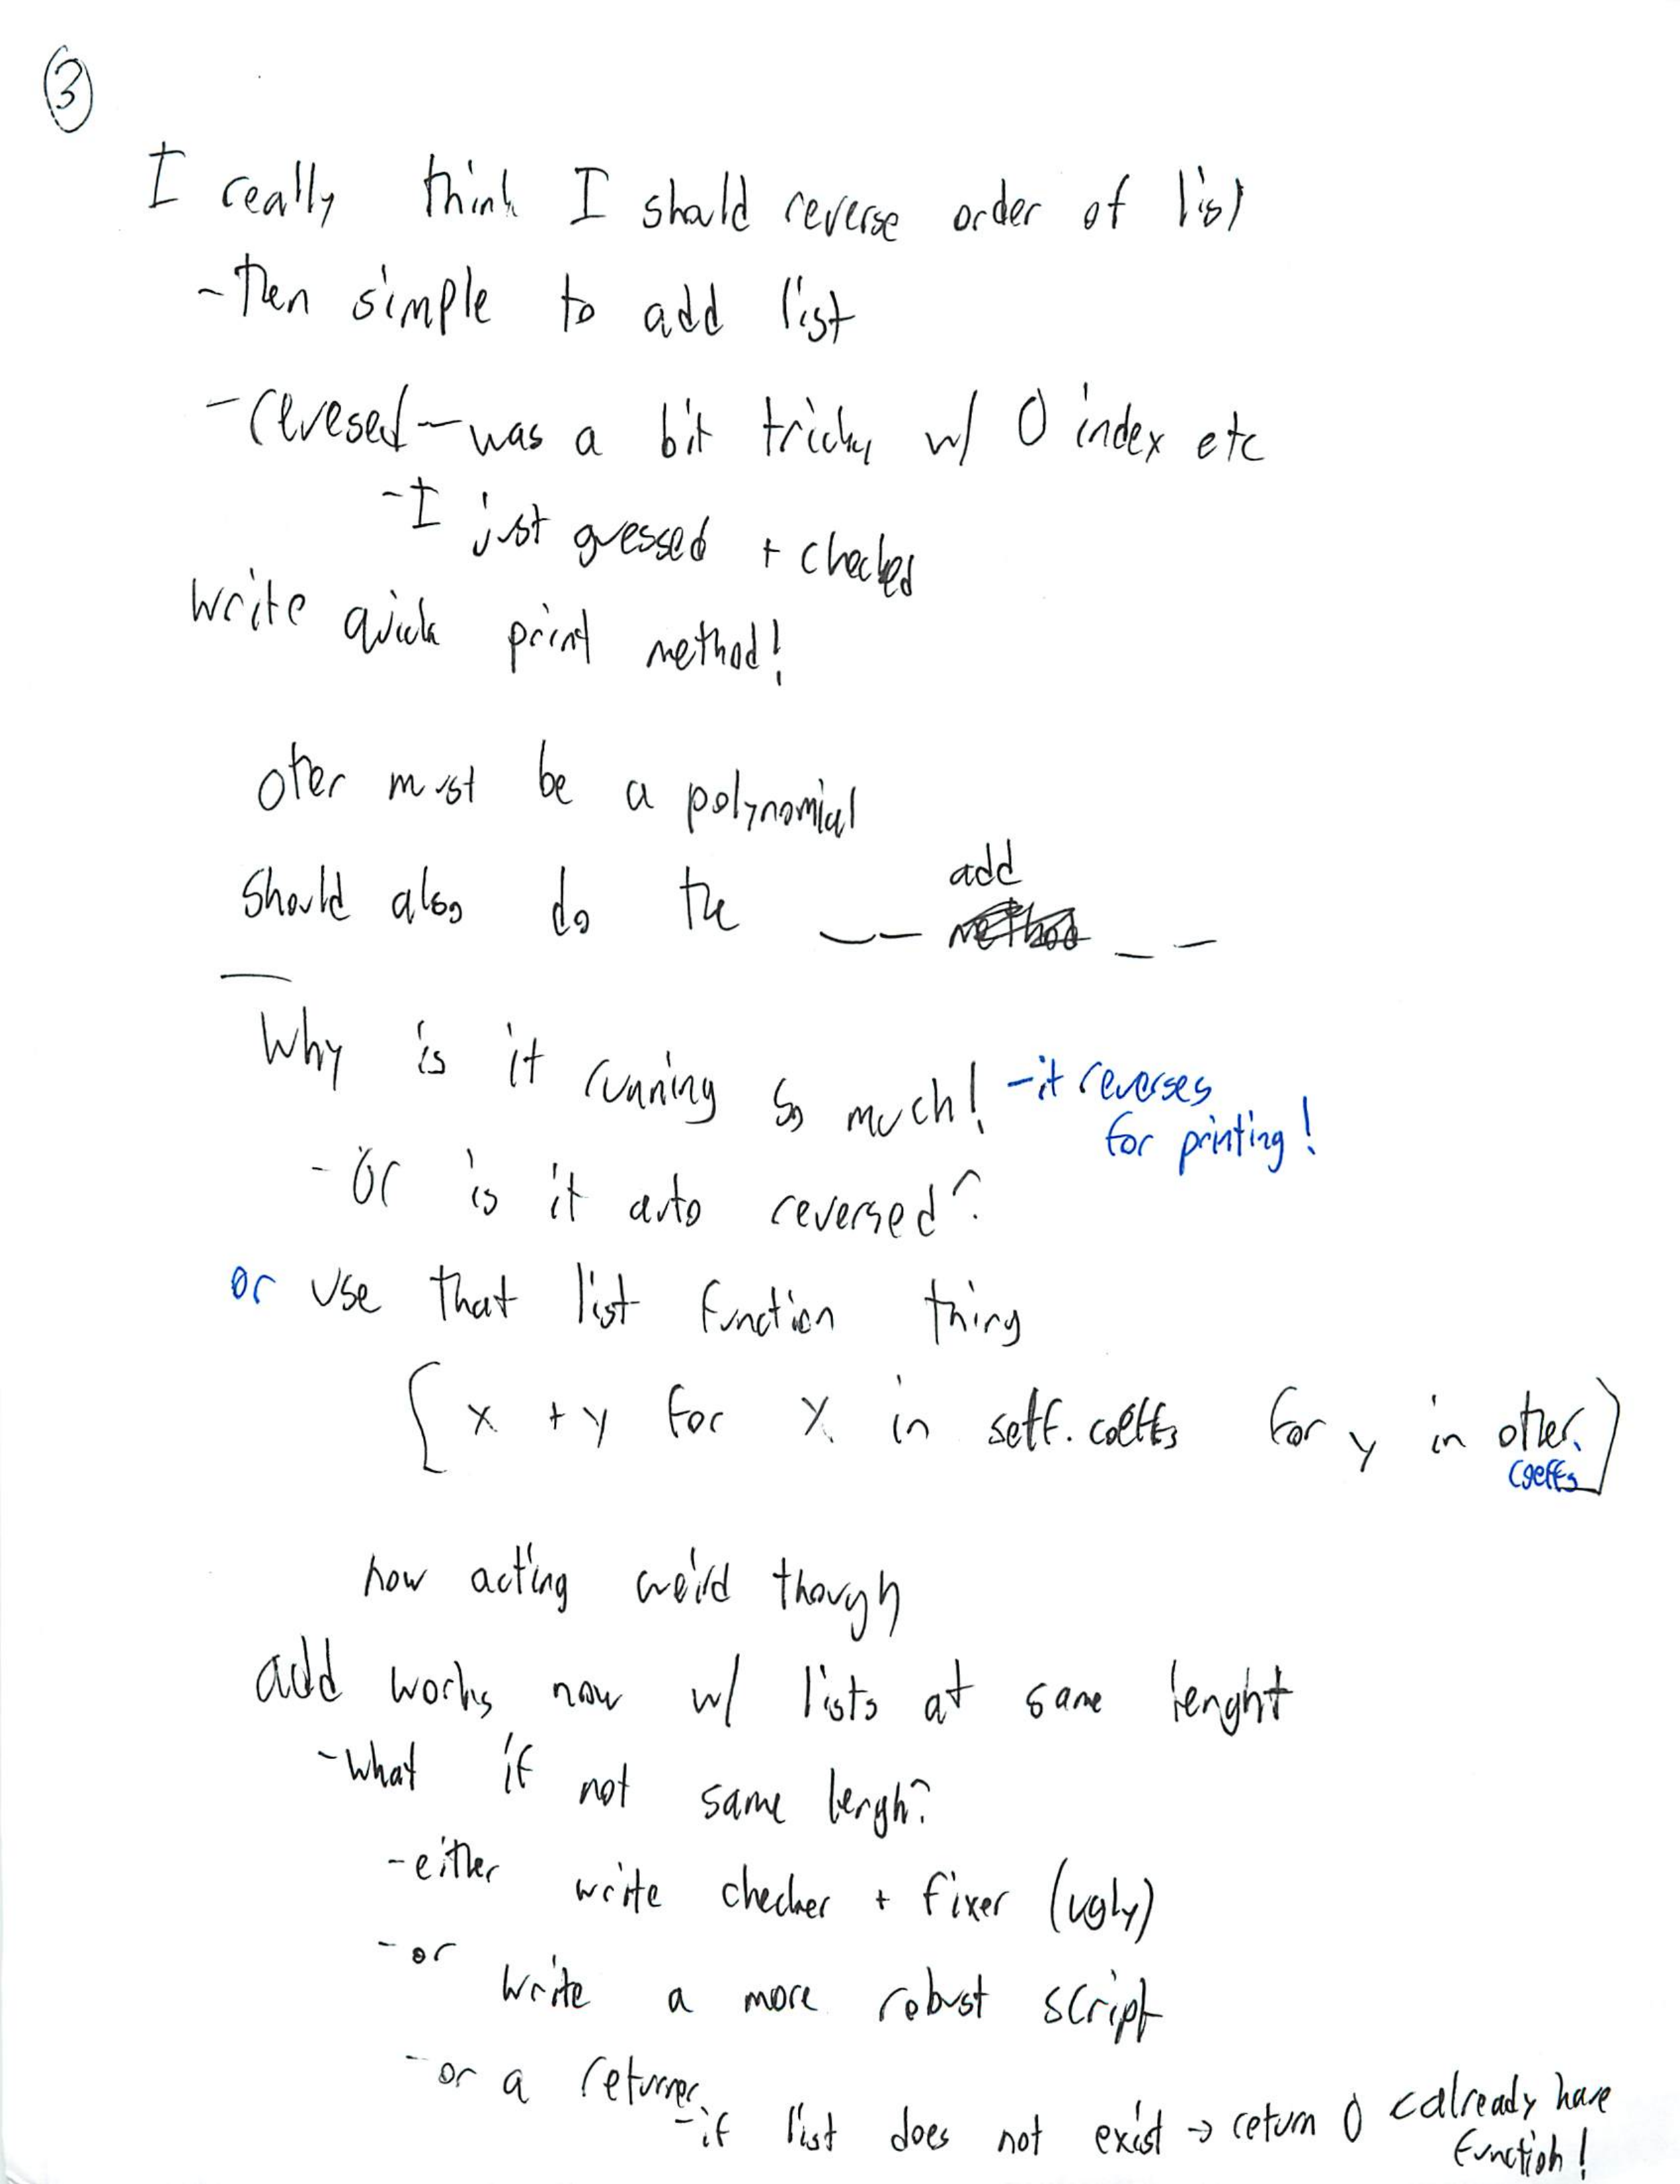 ③
I really think I should reverse order of list
- Then simple to add list
- revesed - was a bit tricky w/ 0 index etc
- I just guessed + checked
write quick print method!
other must be a polynomial
should also do the __ add __
Why is it running so much! - it reverses
for printing!
- Or is it auto reversed?
or use that list function thing
[x + y for x in self.coeffs for y in other.
coeffs]
how acting weird though
add works now w/ lists at same lenght
- what if not same lengh?
- either write checker + fixer (ugly)
- or write a more robust script
- or a returner
- if list does not exist → return 0 < already have
function!